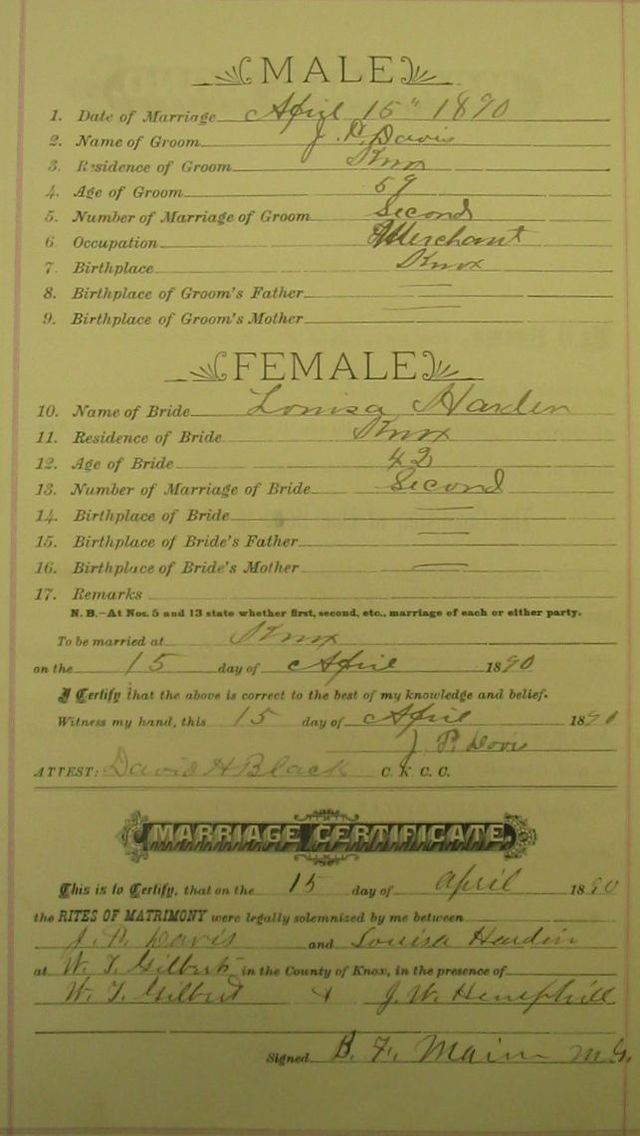 MALE
1. Date of Marriage April 15" 1890
2. Name of Groom J. P. Davis
3. Residence of Groom Knox
4. Age of Groom 59
5. Number of Marriage of Groom Second
6. Occupation Merchant
7. Birthplace Knox
8. Birthplace of Groom's Father —
9. Birthplace of Groom's Mother —
FEMALE
10. Name of Bride Louisa Harden
11. Residence of Bride Knox
12. Age of Bride 42
13. Number of Marriage of Bride Second
14. Birthplace of Bride —
15. Birthplace of Bride's Father —
16. Birthplace of Bride's Mother —
17. Remarks
N. B.—At Nos. 5 and 13 state whether first, second, etc., marriage of each or either party.
To be married at Knox
on the 15 day of April 1890
I Certify that the above is correct to the best of my knowledge and belief.
Witness my hand, this 15 day of April 1890
J. P. Davis
ATTEST: David H Black C. K. C. C.
MARRIAGE CERTIFICATE.
This is to Certify, that on the 15 day of April 1890
the RITES OF MATRIMONY were legally solemnized by me between
J. P. Davis and Louisa Hardin
at W. T. Gilberts in the County of Knox, in the presence of
W. T. Gilbert & J. W. Hemphill
Signed B. F. M. G.